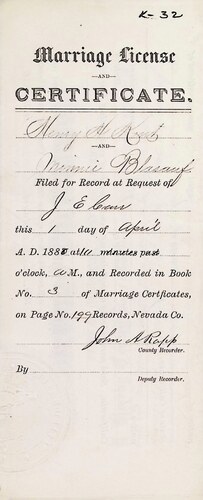 K-32
Marriage License
—AND—
CERTIFICATE.
Henry H
—AND—
Minnie
Filed for Record at Request of
J E
this 1 day of April
A. D. 188 at 10 minutes past
o'clock, A M., and Recorded in Book
No. 3 of Marriage Certficates,
on Page No. 199 Records, Nevada Co.
John A Rapp
County Recorder.
By
Deputy Recorder.